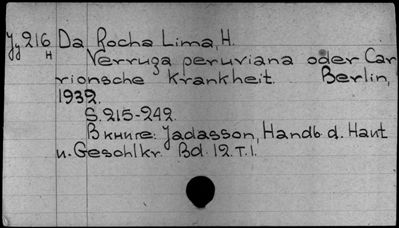 Jy 216 Da Rocha Lima, H.
H Verruga peruviana oder Car
rionsche Krankheit. Berlin,
1932.
S. 215-242.
В книге: Jadasson, Handb d. Haut
u. Geschlkr. Bd. 12. T. 1.